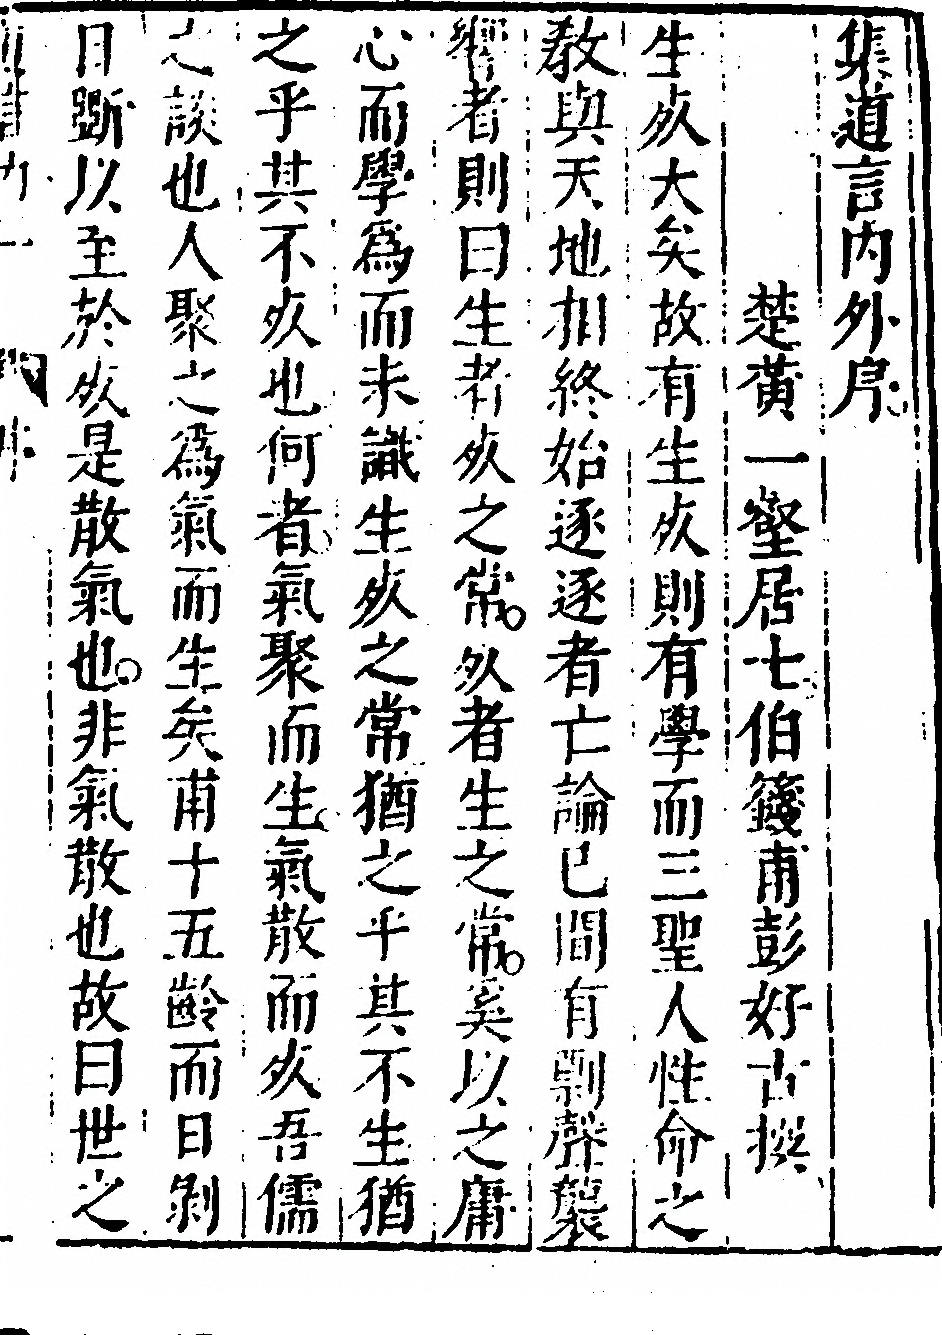 集道言内外序
楚黃一壑居士伯籛甫彭好古撰
生死大矣故有生死則有學而三聖人性命之
教與天地相終始逐逐者亡論已間有剽聲襲
響者則曰生者死之常死者生之常奚以之庸
心而學爲而未識生死之常猶之乎其不生猶
之乎其不死也何者氣聚而生氣散而死吾儒
之談也人聚之爲氣而生矣甫十五齡而日剝
日斲以至於死是散氣也非氣散也故曰世之